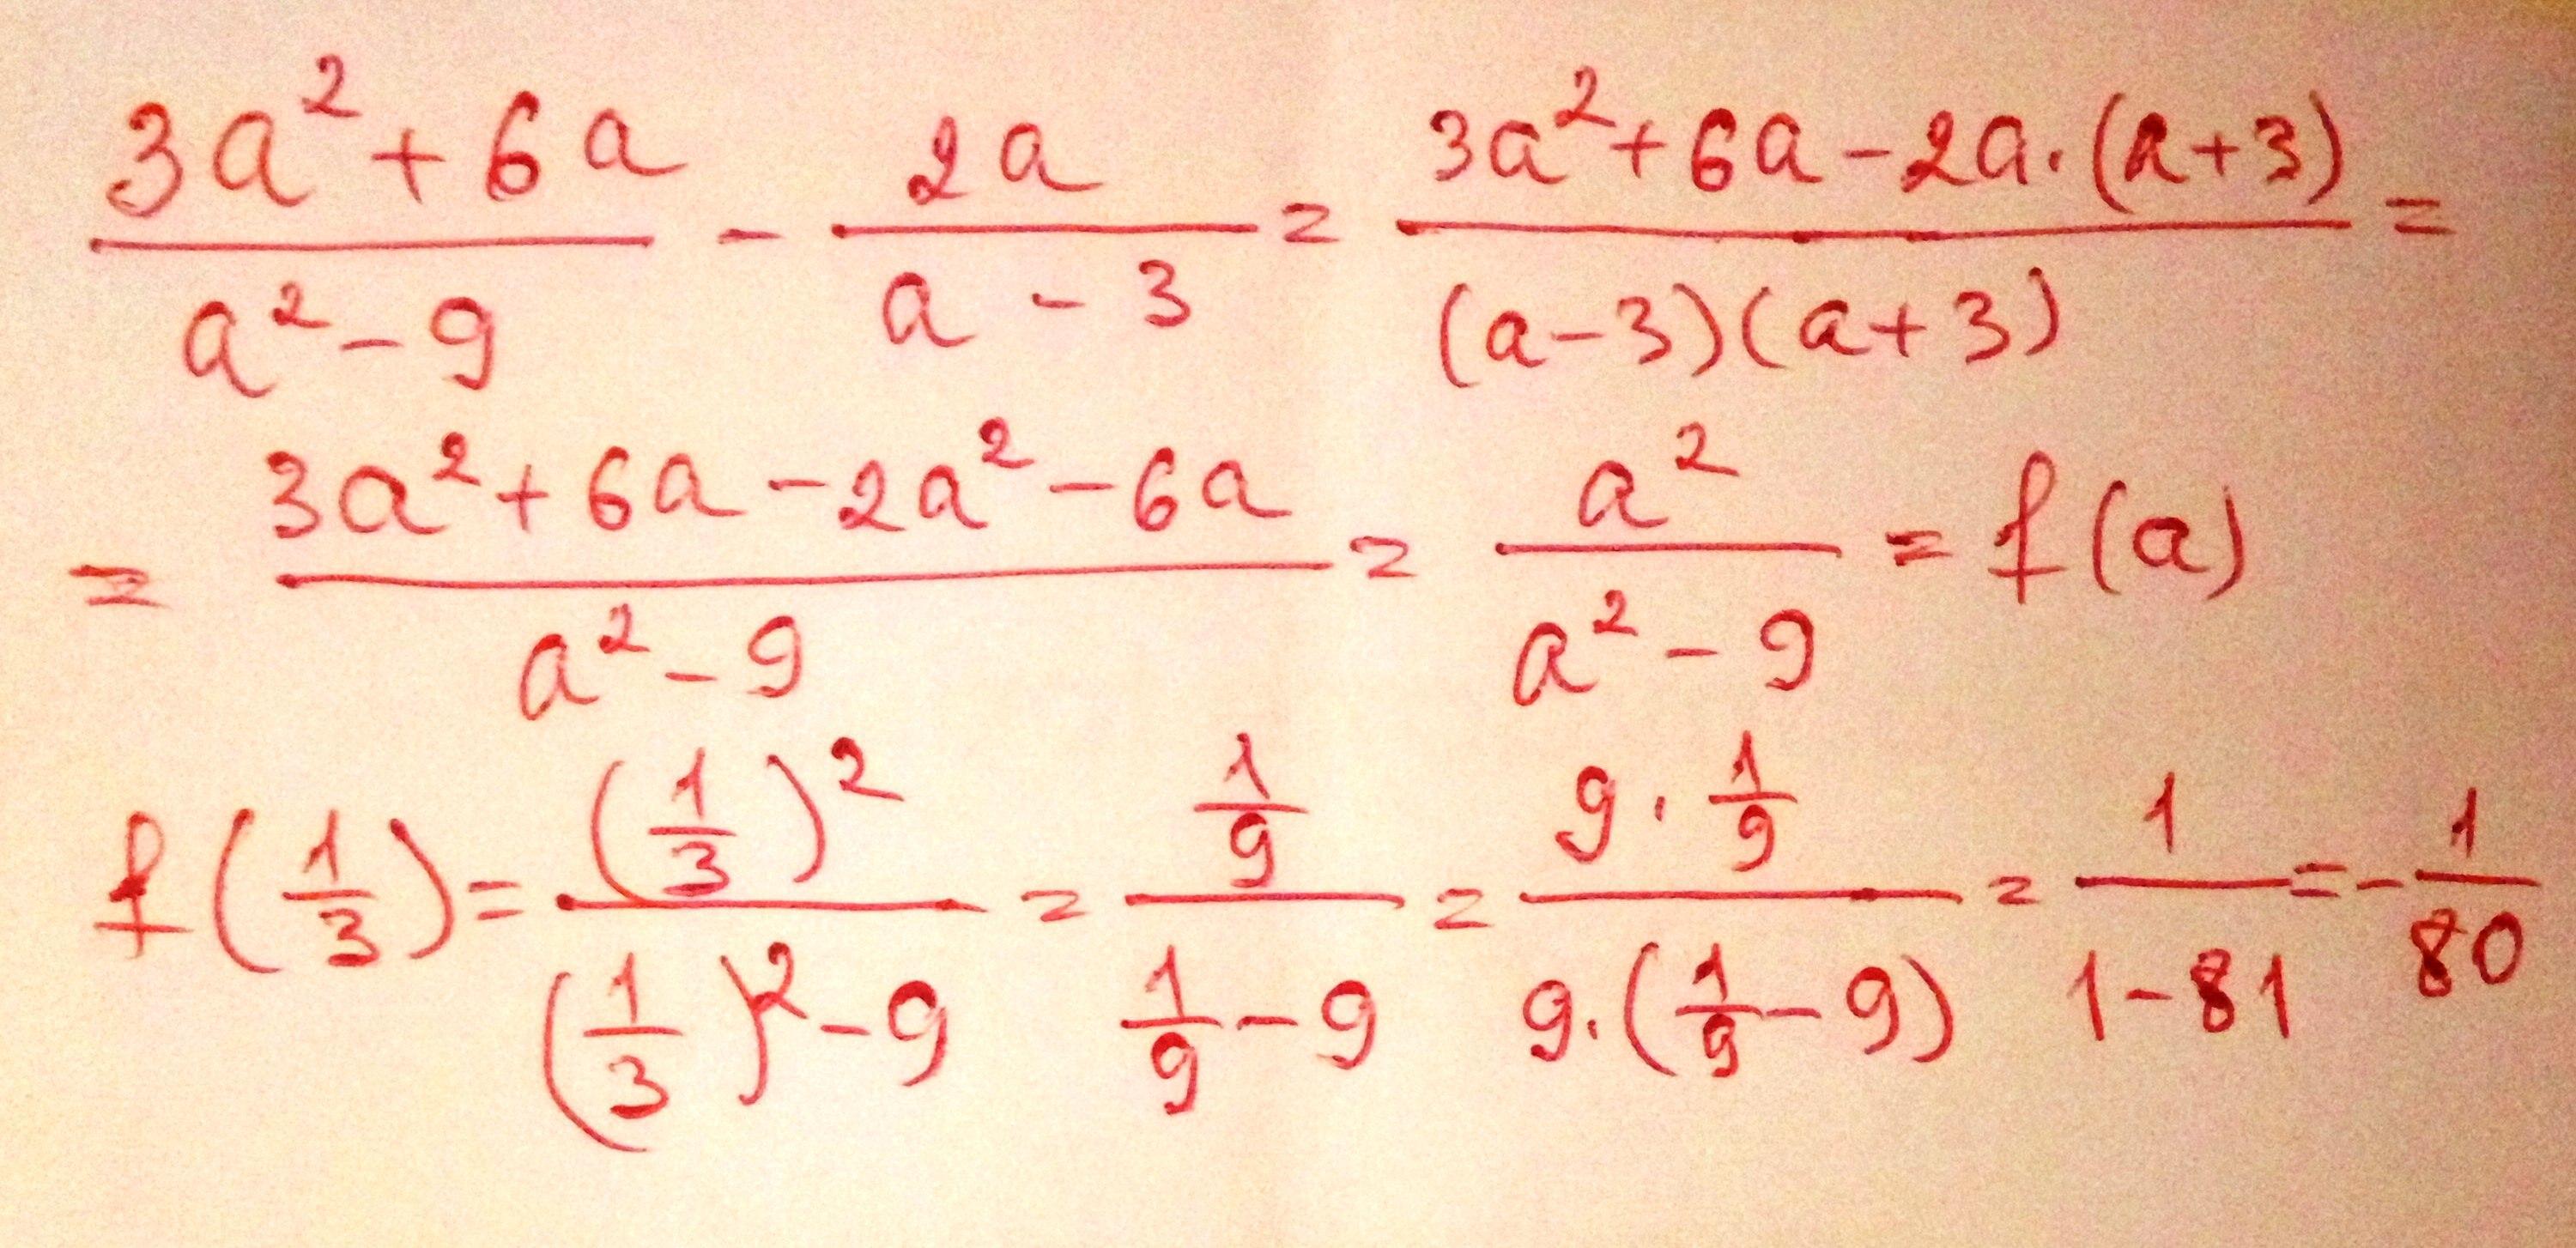 \frac{3a^2+6a}{a^2-9} - \frac{2a}{a-3} = \frac{3a^2+6a-2a\cdot(a+3)}{(a-3)(a+3)} =
= \frac{3a^2+6a-2a^2-6a}{a^2-9} = \frac{a^2}{a^2-9} = f(a)
f(\frac{1}{3}) = \frac{(\frac{1}{3})^2}{(\frac{1}{3})^2-9} = \frac{\frac{1}{9}}{\frac{1}{9}-9} = \frac{9\cdot\frac{1}{9}}{9\cdot(\frac{1}{9}-9)} = \frac{1}{1-81} = -\frac{1}{80}